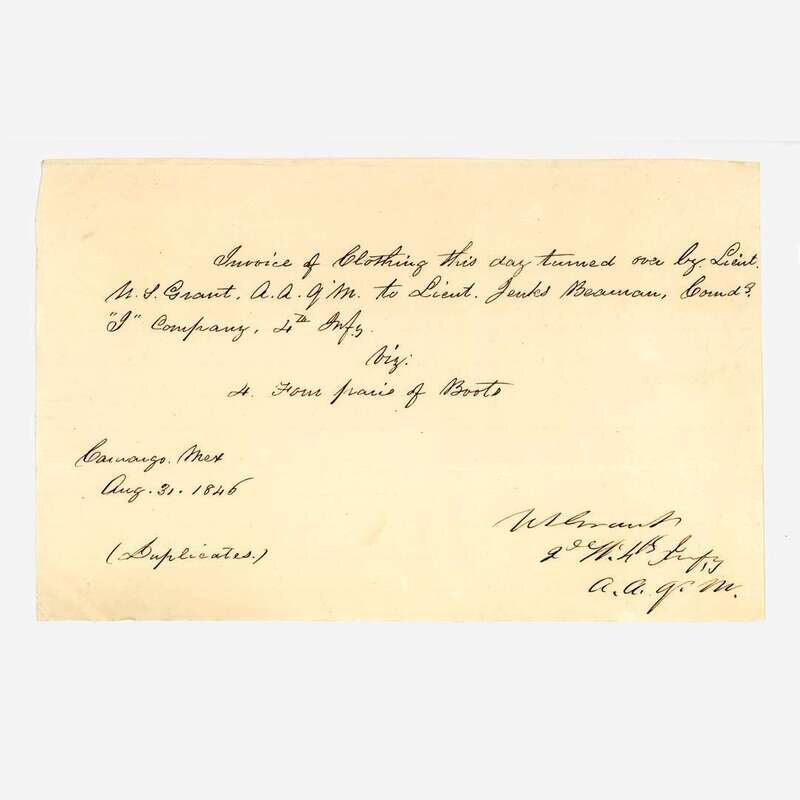 Invoice of Clothing this day turned over by Lieut.
U. S. Grant, A. A. Q M. to Lieut. Jenks Beaman, Comdg.
"I" Company, 4th Infy.
Viz:
4. Four pairs of Boots
Camargo. Mex
Aug. 31. 1846
(Duplicates.)
U S Grant
2d Lt. 4th Infy
A. A. Q. M.